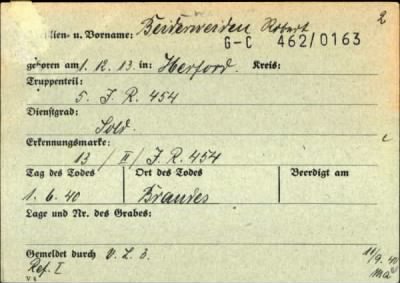 2
Familien- u. Vorname: Beiderweiden Robert
G-C 462/0163
geboren am 1.12.13 in: Herford. Kreis:
Truppenteil:
5. J.R. 454
Dienstgrad:
Sold.
Erkennungsmarke:
13 / II / J.R. 454
Tag des Todes Ort des Todes Beerdigt am
1.6.40 Brandes
Lage und Nr. des Grabes:
Gemeldet durch V.L. 3.
Ref. I
11/9.40